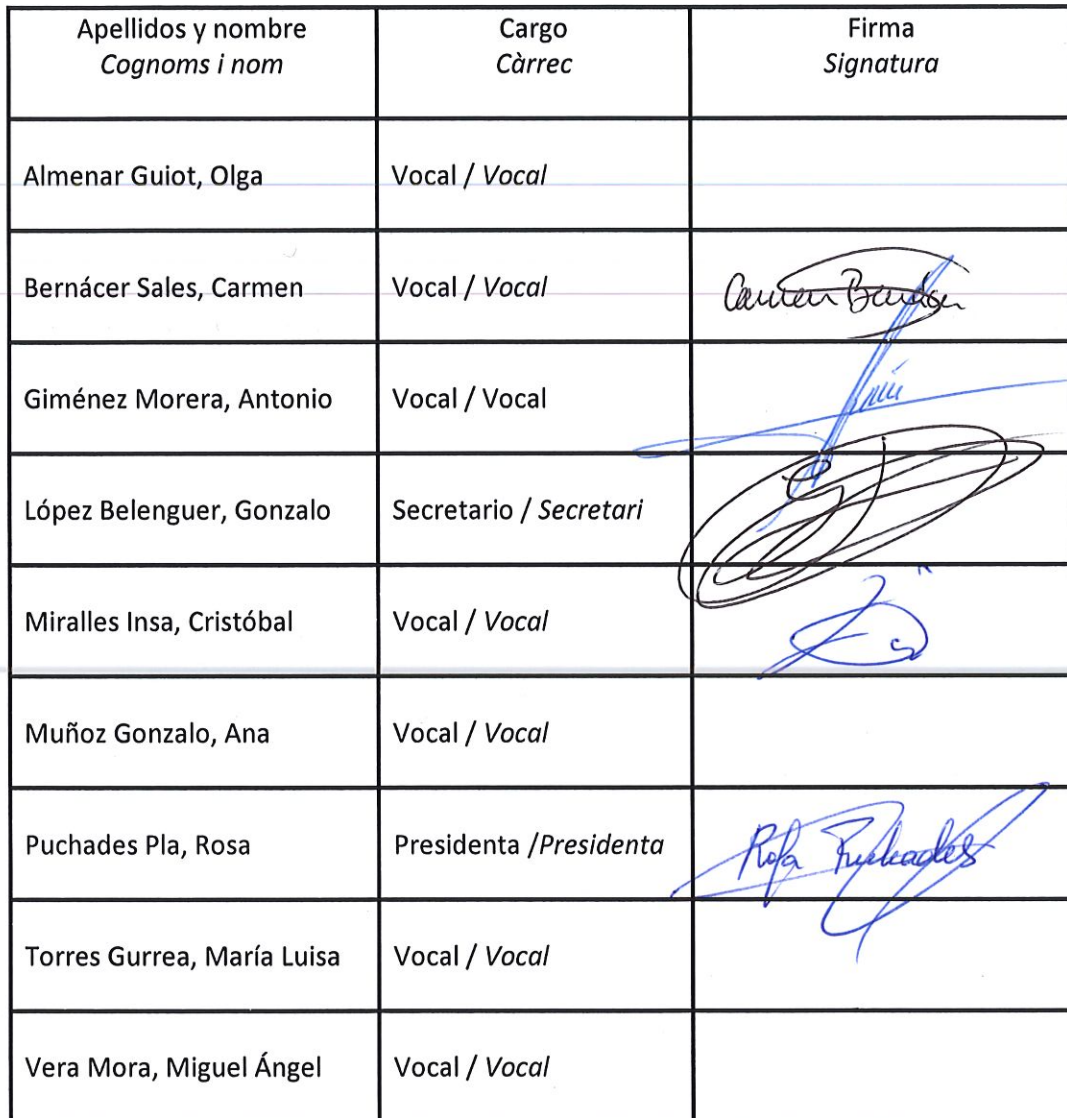 Apellidos y nombre Cargo Firma
Cognoms i nom Càrrec Signatura
Almenar Guiot, Olga Vocal / Vocal
Bernácer Sales, Carmen Vocal / Vocal Carmen
Giménez Morera, Antonio Vocal / Vocal
López Belenguer, Gonzalo Secretario / Secretari
Miralles Insa, Cristóbal Vocal / Vocal
Muñoz Gonzalo, Ana Vocal / Vocal
Puchades Pla, Rosa Presidenta /Presidenta Rosa Puchades
Torres Gurrea, María Luisa Vocal / Vocal
Vera Mora, Miguel Ángel Vocal / Vocal